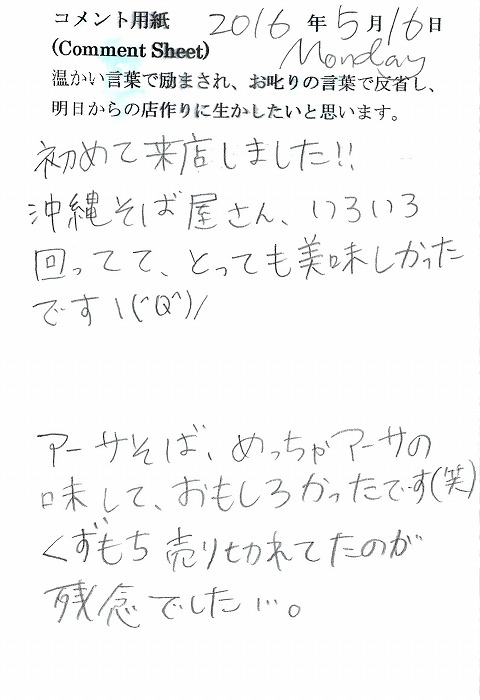 コメント用紙 2016年5月16日
(Comment Sheet) Monday
温かい言葉で励まされ、お叱りの言葉で反省し、
明日からの店作りに生かしたいと思います。
初めて来店しました!!
沖縄そば屋さん、いろいろ
回ってて、とっても美味しかった
です\(^Q^)/
アーサそば、めっちゃアーサの
味して、おもしろかったです(笑)
くずもち売り切れてたのが
残念でした…。